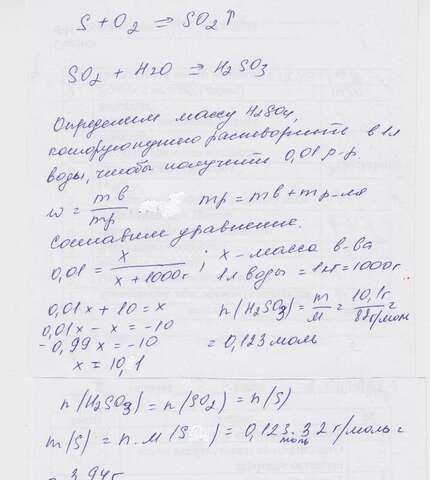 S + O2 => SO2↑
SO2 + H2O ⇄ H2SO3
Определим массу H2SO3,
которую нужно растворить в 1 л
воды, чтобы получить 0,01 р-р.
w = mв / mр mр = mв + mр-ля
Составим уравнение.
0,01 = x / x + 1000г ; x - масса в-ва
1 л воды = 1кг = 1000г
0,01x + 10 = x n(H2SO3) = m / M = 10,1г / 82г/моль =
0,01x - x = -10 = 0,123 моль
-0,99x = -10
x = 10,1
n(H2SO3) = n(SO2) = n(S)
m(S) = n · M(S) = 0,123 моль · 32 г/моль =
= 3,94г